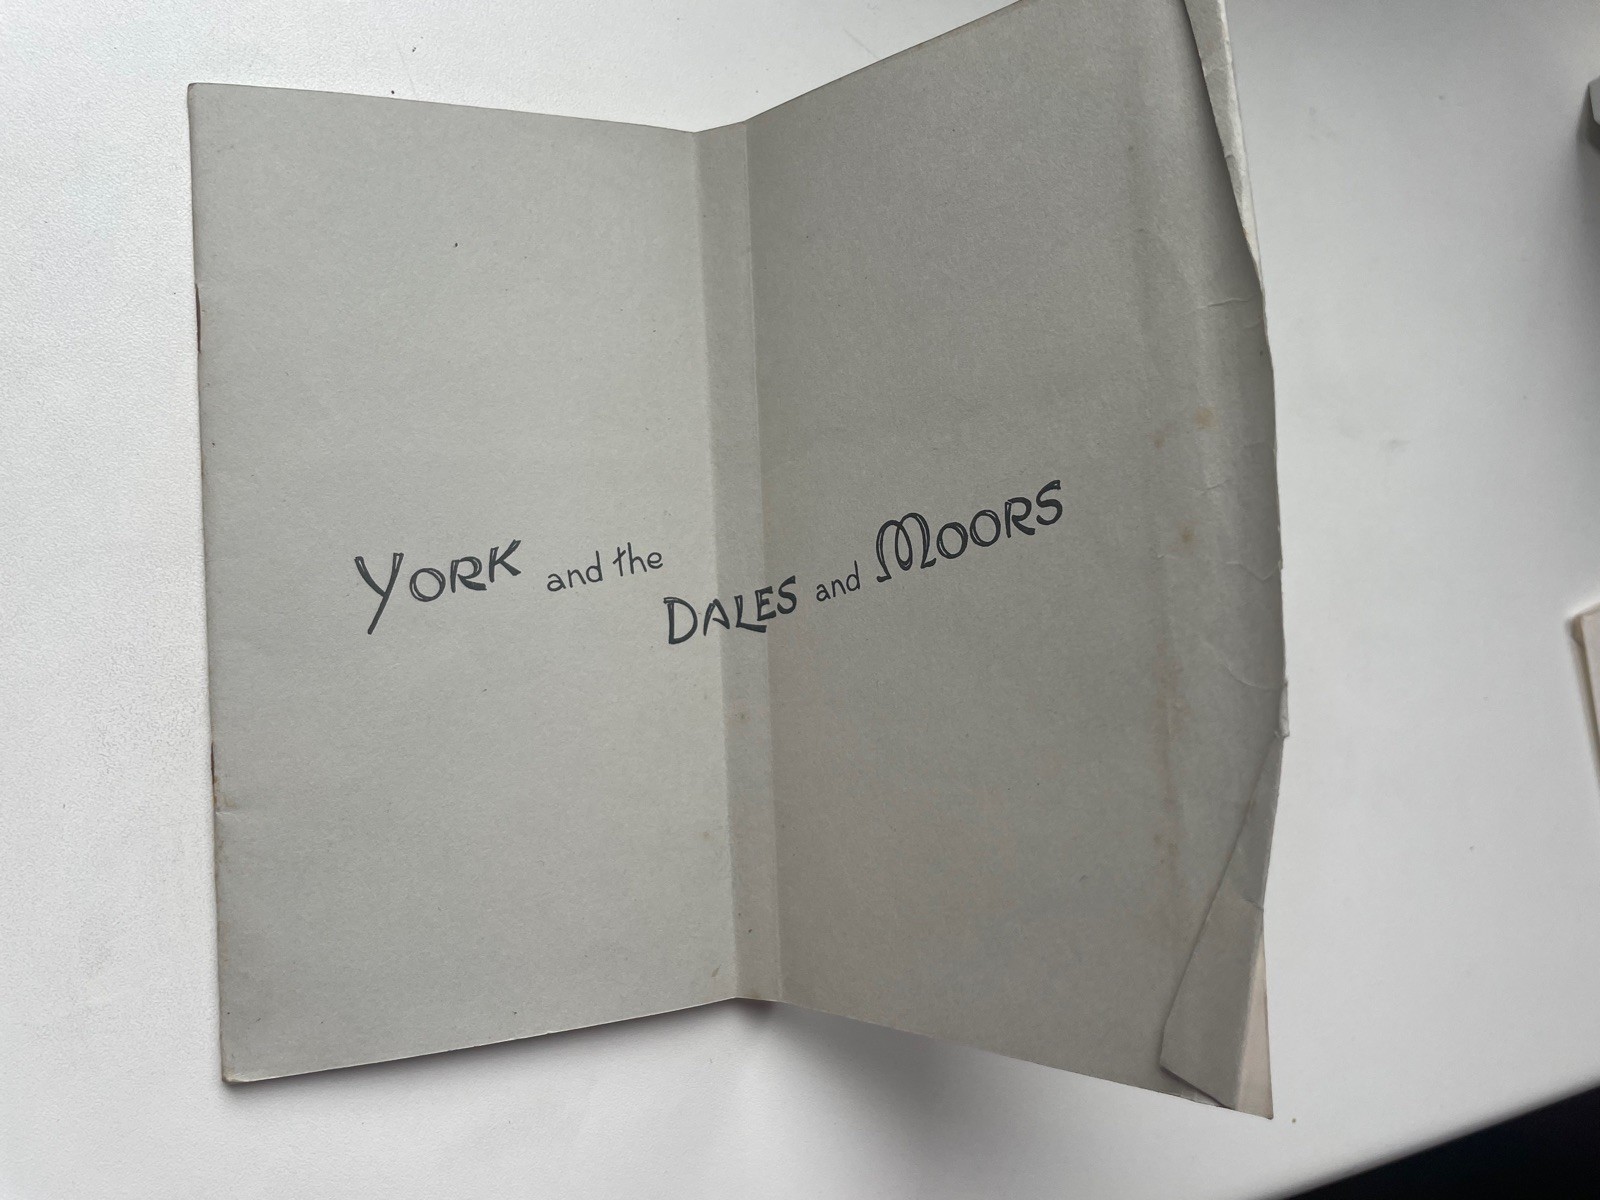 YORK and the
DALES and MOORS